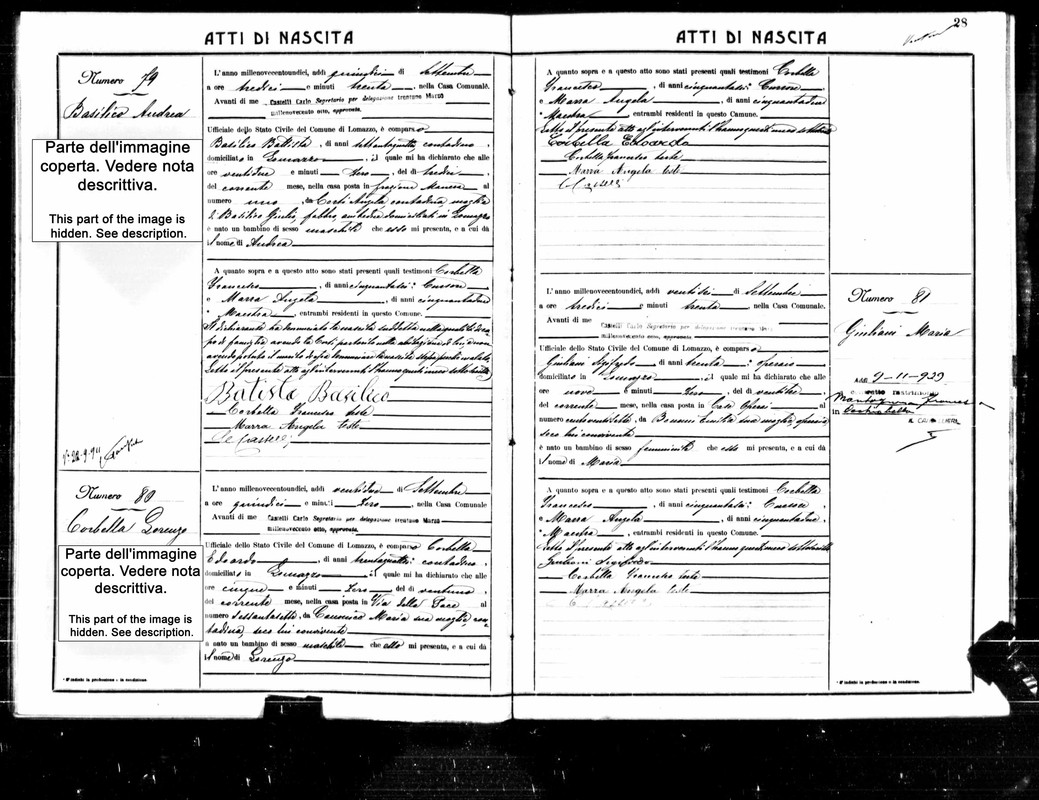 ATTI DI NASCITA
Numero 79
Basilico Andrea
Parte dell'immagine
coperta. Vedere nota
descrittiva.
This part of the image is
hidden. See description.
L'anno millenovecentoundici, addì quindici di Settembre
a ore tredici e minuti trenta, nella Casa Comunale.
Avanti di me Castelli Carlo Segretario per delegazione trentuno Marzo
millenovecento otto, approvata,
Ufficiale dello Stato Civile del Comune di Lomazzo, è comparso
Basilico Battista, di anni sessantaquattro, contadino
domiciliato in Lomazzo, il quale mi ha dichiarato che alle
ore ventidue e minuti Zero, del dì tredici
del corrente mese, nella casa posta in frazione Manera al
numero uno, da Corti Angela contadina, moglie
di Basilico Giulio, fabbro, ambedue domiciliati in Lomazzo
è nato un bambino di sesso maschile che esso mi presenta, e a cui dà
il nome di Andrea
A quanto sopra e a questo atto sono stati presenti quali testimoni Corbella
Francesco, di anni cinquantasei: Cursore
e Marra Angela, di anni cinquantadue
Maestra entrambi residenti in questo Comune.
Il dichiarante ha denunciato la nascita suddetta
Letto il presente atto agli intervenuti l'hanno questi meco sottoscritto
Batista Basilico
Corbella Francesco teste
Marra Angela teste
Numero 80
Corbella Lorenzo
Parte dell'immagine
coperta. Vedere nota
descrittiva.
This part of the image is
hidden. See description.
L'anno millenovecentoundici, addì ventidue di Settembre
a ore quindici e minuti Zero, nella Casa Comunale
Avanti di me Castelli Carlo Segretario per delegazione trentuno Marzo
millenovecento otto, approvata,
Ufficiale dello Stato Civile del Comune di Lomazzo, è comparso Corbella
Edoardo, di anni trentaquattro: contadino
domiciliato in Lomazzo, il quale mi ha dichiarato che alle
ore cinque e minuti Zero del dì ventuno
del corrente mese, nella casa posta in Via della Pace al
numero sessantasette, da Maria sua moglie, con
tadina, seco lui convivente
è nato un bambino di sesso maschile che esso mi presenta, e a cui dà
il nome di Lorenzo
* S'indichi la professione o la condizione.
28
ATTI DI NASCITA
A quanto sopra e a questo atto sono stati presenti quali testimoni Corbella
Francesco, di anni cinquantasei: Cursore
e Marra Angela, di anni cinquantadue
Maestra entrambi residenti in questo Comune.
Letto il presente atto agli intervenuti l'hanno questi meco sottoscritto
Corbella Edoardo
Corbella Francesco teste
Marra Angela teste
Numero 81
Giuliani Maria
L'anno millenovecentoundici, addì ventisei di Settembre
a ore tredici e minuti trenta, nella Casa Comunale.
Avanti di me Castelli Carlo Segretario per delegazione trentuno Marzo
millenovecento otto, approvata,
Ufficiale dello Stato Civile del Comune di Lomazzo, è comparso
Giuliani Sigifredo, di anni trenta: operaio
domiciliato in Lomazzo, il quale mi ha dichiarato che alle
ore nove e minuti Zero, del dì ventitre
del corrente mese, nella casa posta in Case Operai al
numero centoventisette, da Emilia sua moglie, operaia
seco lui convivente
è nato un bambino di sesso femminile che esso mi presenta, e a cui dà
il nome di Maria
9-11-939
A quanto sopra e a questo atto sono stati presenti quali testimoni Corbella
Francesco, di anni cinquantasei: Cursore
e Marra Angela, di anni cinquantadue,
Maestra entrambi residenti in questo Comune.
Letto il presente atto agli intervenuti l'hanno questi meco sottoscritto
Giuliani Sigifredo
Corbella Francesco teste
Marra Angela teste
* S'indichi la professione o la condizione.